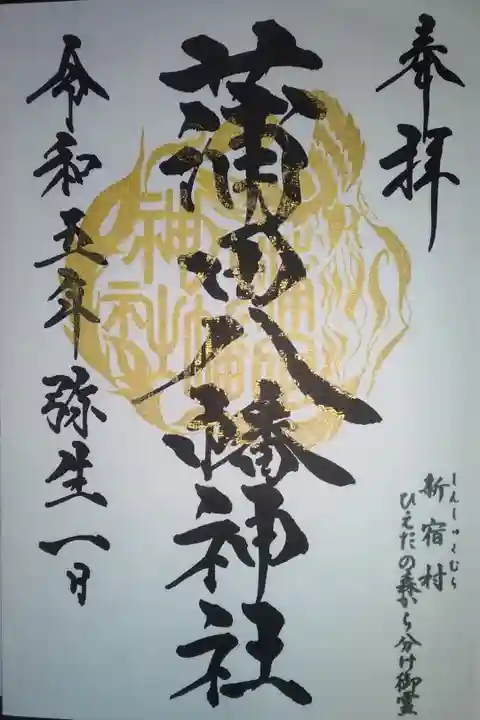 奉拝
新宿村
しんしゅくむら
ひえだの森から分け御霊
蒲田八幡神社
令和五年弥生一日